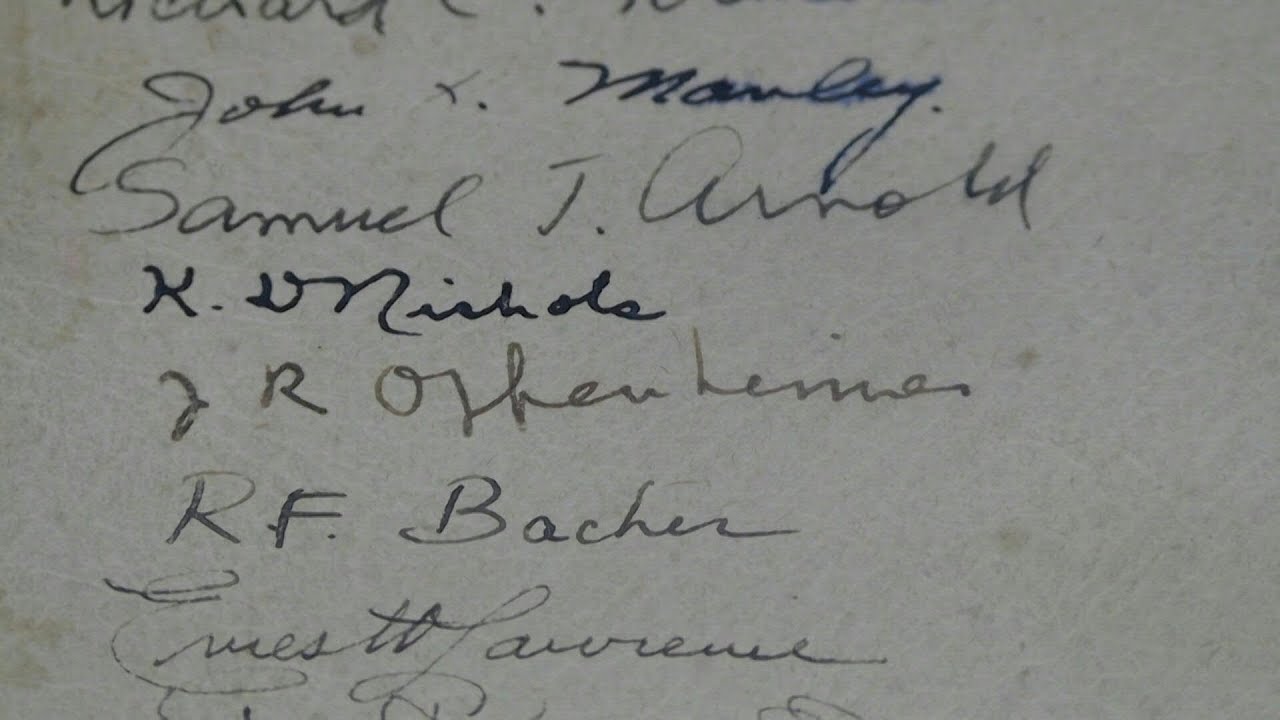 Richard C.
John L. Manley.
Samuel T. Arnold
K. D Nichols
J R Oppenheimer
R F. Bacher
Ernest O Lawrence